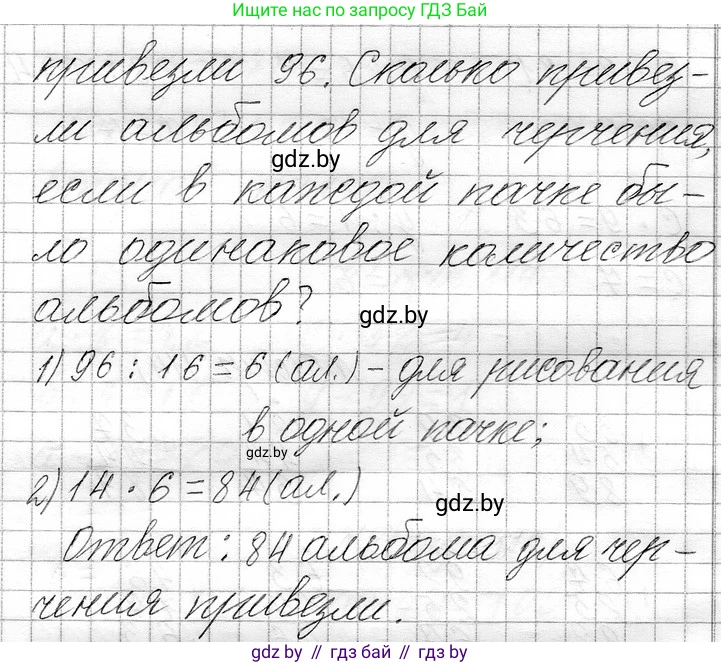 Ищите нас по запросу ГДЗ Бай
привезли 96. Сколько привез-
ли альбомов для черчения,
gdz.by
если в каждой пачке бы-
ло одинаковое количество
альбомов?
gdz.by
1) 96 : 16 = 6 (ал.) - для рисования
в одной пачке;
gdz.by
2) 14 · 6 = 84 (ал.)
gdz.by
Ответ: 84 альбома для чер-
чения привезли.
gdz.by // гдз бай // gdz.by